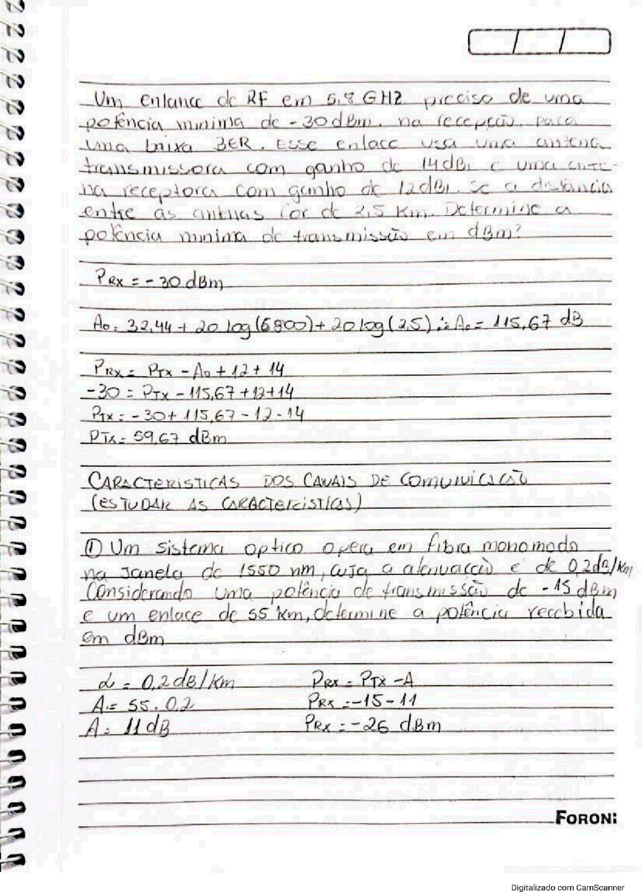 Um enlance de RF em 5,8 GHz precisa de uma
potência minima de -30dBm. na recepção, para
uma baixa BER. Esse enlace usa uma antena
transmissora com ganho de 14dBi e uma ante-
na receptora com ganho de 12dBi. se a distância
entre as antenas for de 2,5 Km. Determine a
potência minima de transmissão em dBm?
PRX = -30 dBm
A0 = 32,44 + 20 log(5800) + 20 log(2,5) ∴ A0 = 115,67 dB
PRX = PTX - A0 + 12 + 14
-30 = PTX - 115,67 + 12 + 14
PTX = -30 + 115,67 - 12 - 14
PTX = 59,67 dBm
CARACTERISTICAS DOS CANAIS DE COMUNICAÇÃO
(ESTUDAR AS CARACTERISTICAS)
① Um sistema optico opera em fibra monomodo
na Janela de 1550 nm, cuja a atenuação é de 0,2dB/Km
Considerando uma potência de transmissão de -15 dBm
e um enlace de 55 Km, determine a potência recebida
em dBm
α = 0,2 dB/Km PRX = PTX - A
A = 55 . 0,2 PRX = -15 - 11
A = 11 dB PRX = -26 dBm
FORONI
Digitalizado com CamScanner